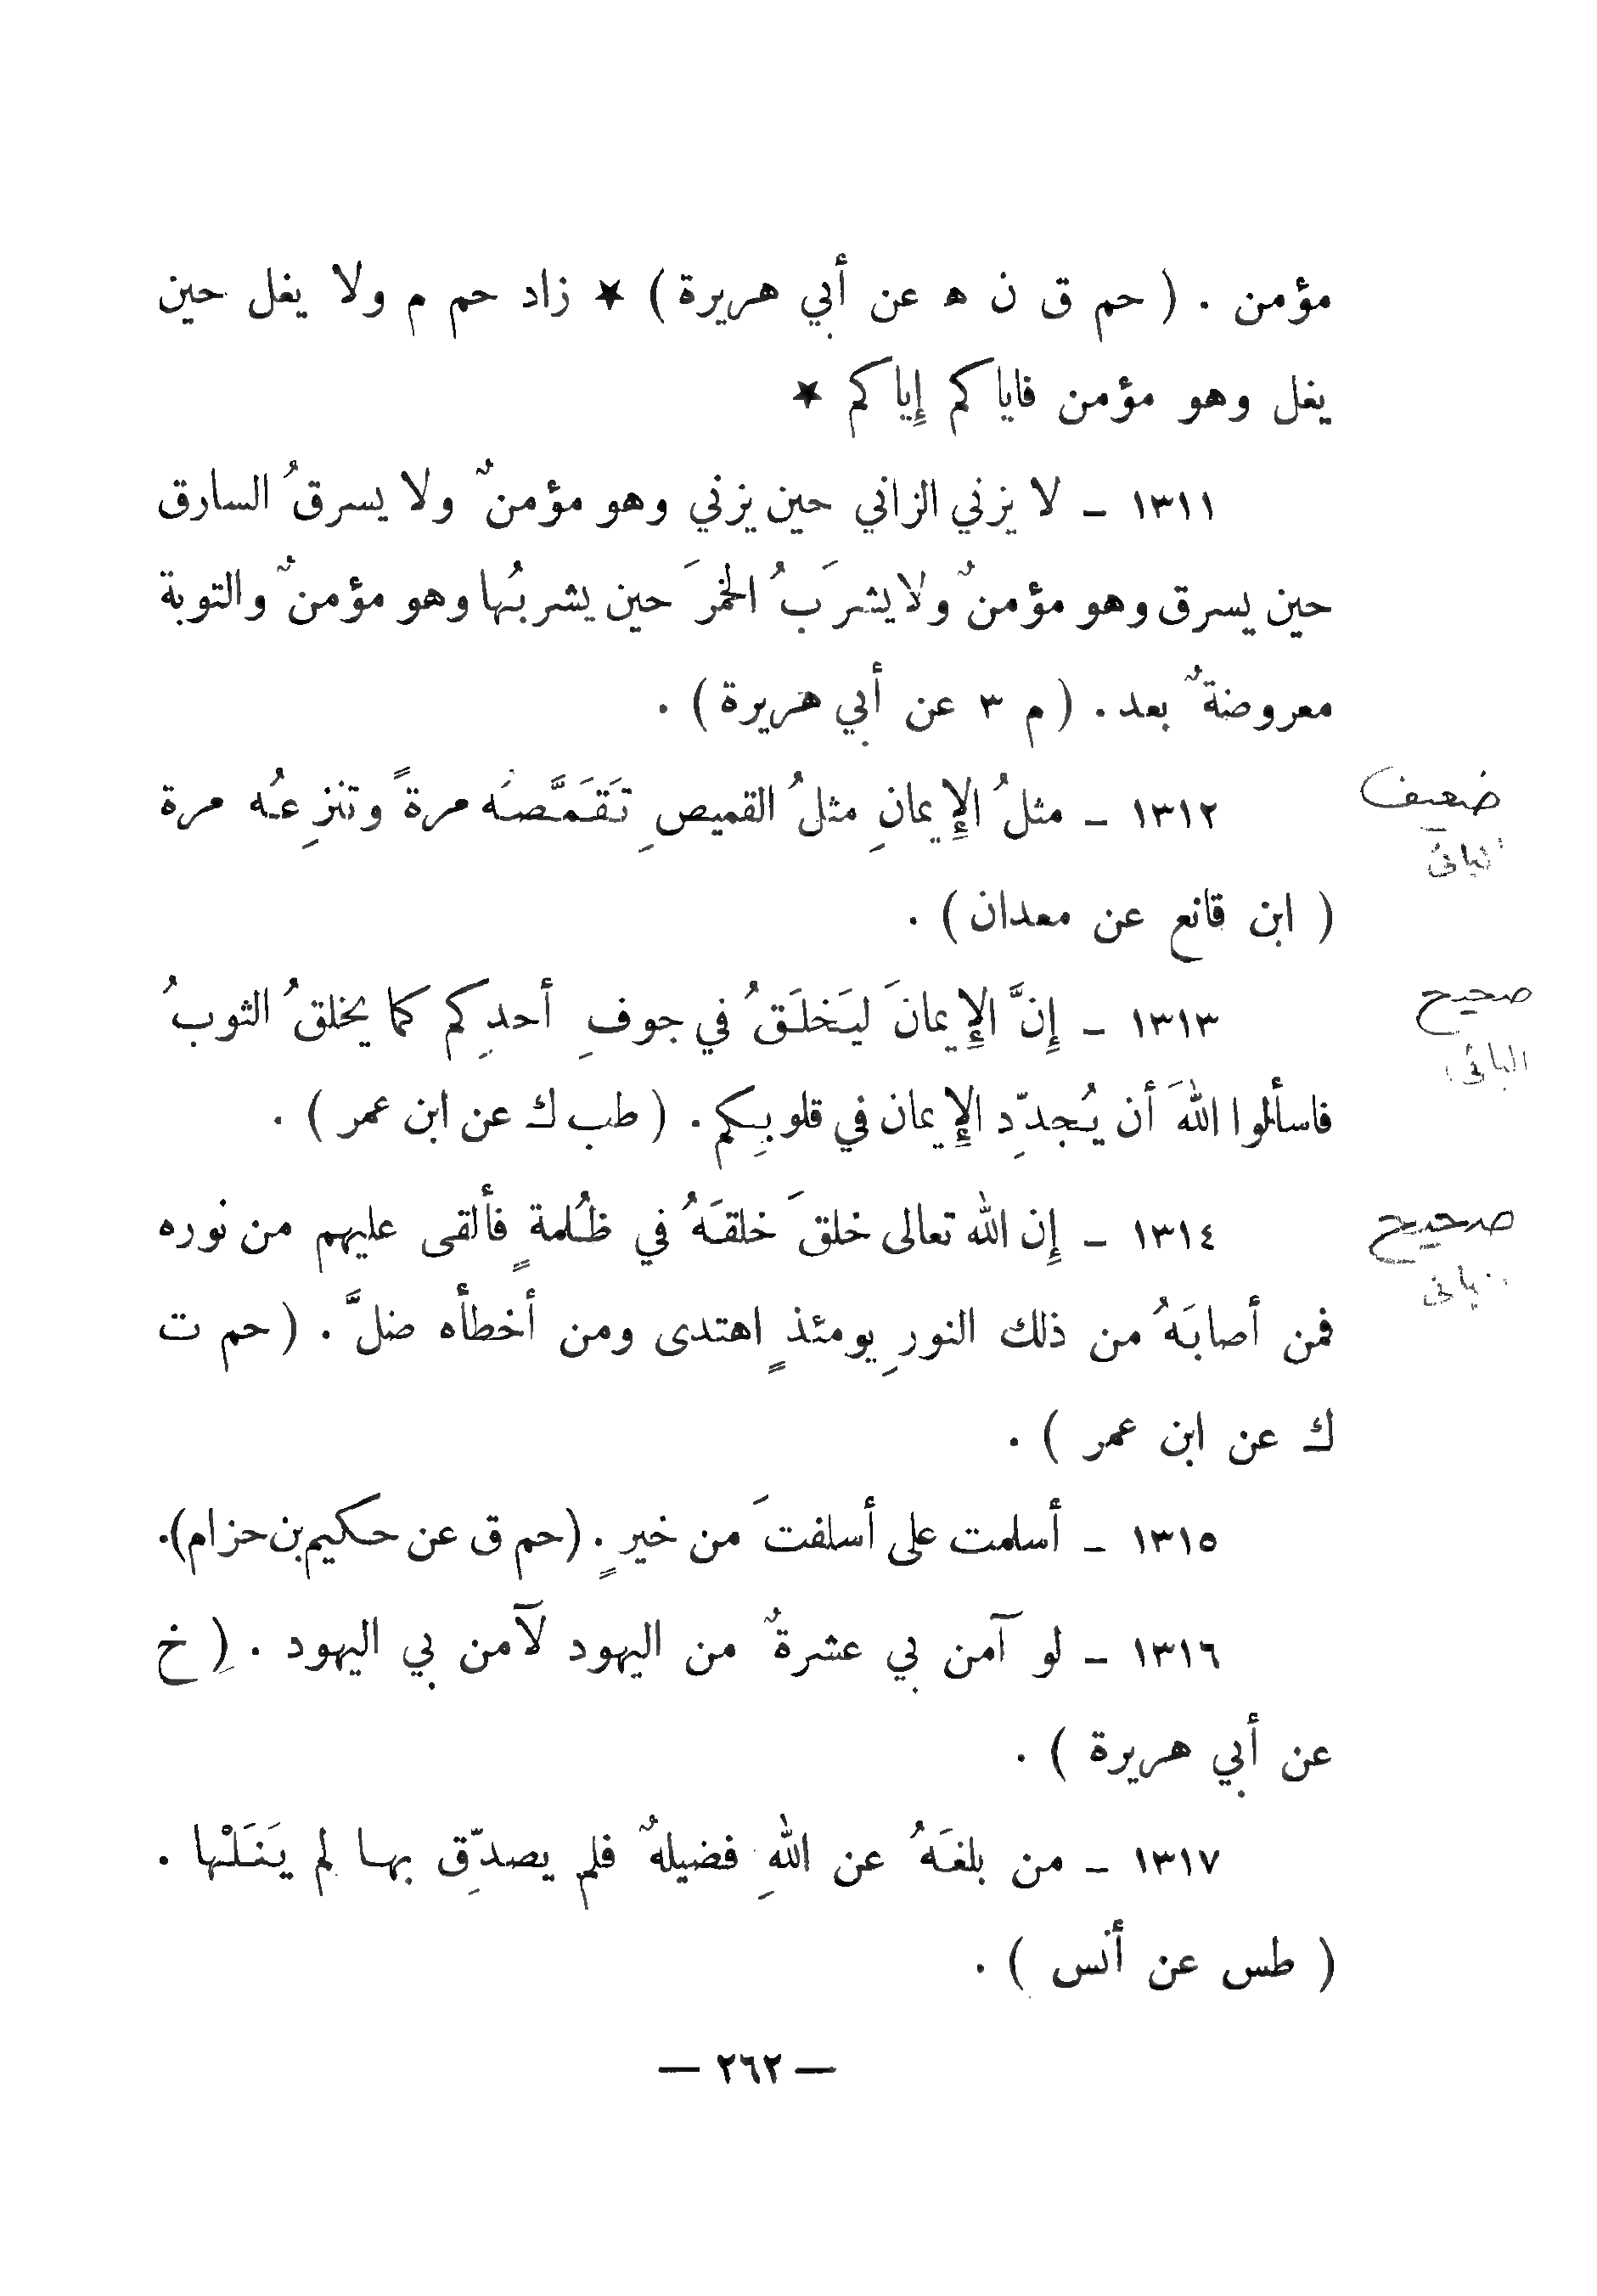 مؤمن . ( حم ق ن ه عن أبي هريرة ) ★ زاد حم م ولا يغل حين
يغل وهو مؤمن فاياكم إِياكم ★
١٣١١ ـ لا يزني الزاني حين يزني وهو مؤمنٌ ولا يسرقُ السارق
حين يسرق وهو مؤمنٌ ولا يشرَبُ الخمرَ حين يشربُها وهو مؤمنٌ والتوبة
معروضةٌ بعد . ( م ٣ عن أبي هريرة ) .
١٣١٢ ـ مثلُ الإِيمانِ مثلُ القميصِ تَقَمَّصَه مرةً وتنزِعُه مرة
ضعيف
البانى
( ابن قانع عن معدان ) .
١٣١٣ ـ إِنَّ الإِيمانَ ليَخلَقُ في جوفِ أحدِكم كما يخلقُ الثوبُ
صحيح
البانى
فاسألوا اللهَ أن يُجدّدِ الإِيمان في قلوبِكم . ( طب ك عن ابن عمر ) .
١٣١٤ ـ إِن الله تعالى خلقَ خلقَهُ في ظُلمةٍ فألقى عليهم من نوره
صحيح
فمن أصابَهُ من ذلك النورِ يومئذٍ اهتدى ومن أخطأه ضلَّ . ( حم ت
ك عن ابن عمر ) .
١٣١٥ ـ أسلمت على أسلفتَ من خيرٍ . ( حم ق عن حكيم بن حزام ) .
١٣١٦ ـ لو آمن بي عشرةٌ من اليهود لآمن بي اليهود . ( خ
عن أبي هريرة ) .
١٣١٧ ـ من بلغَهُ عن اللهِ فضيلهٌ فلم يصدّقِ بها لم يَنَلْها .
( طس عن أنس ) .
— ٢٦٢ —